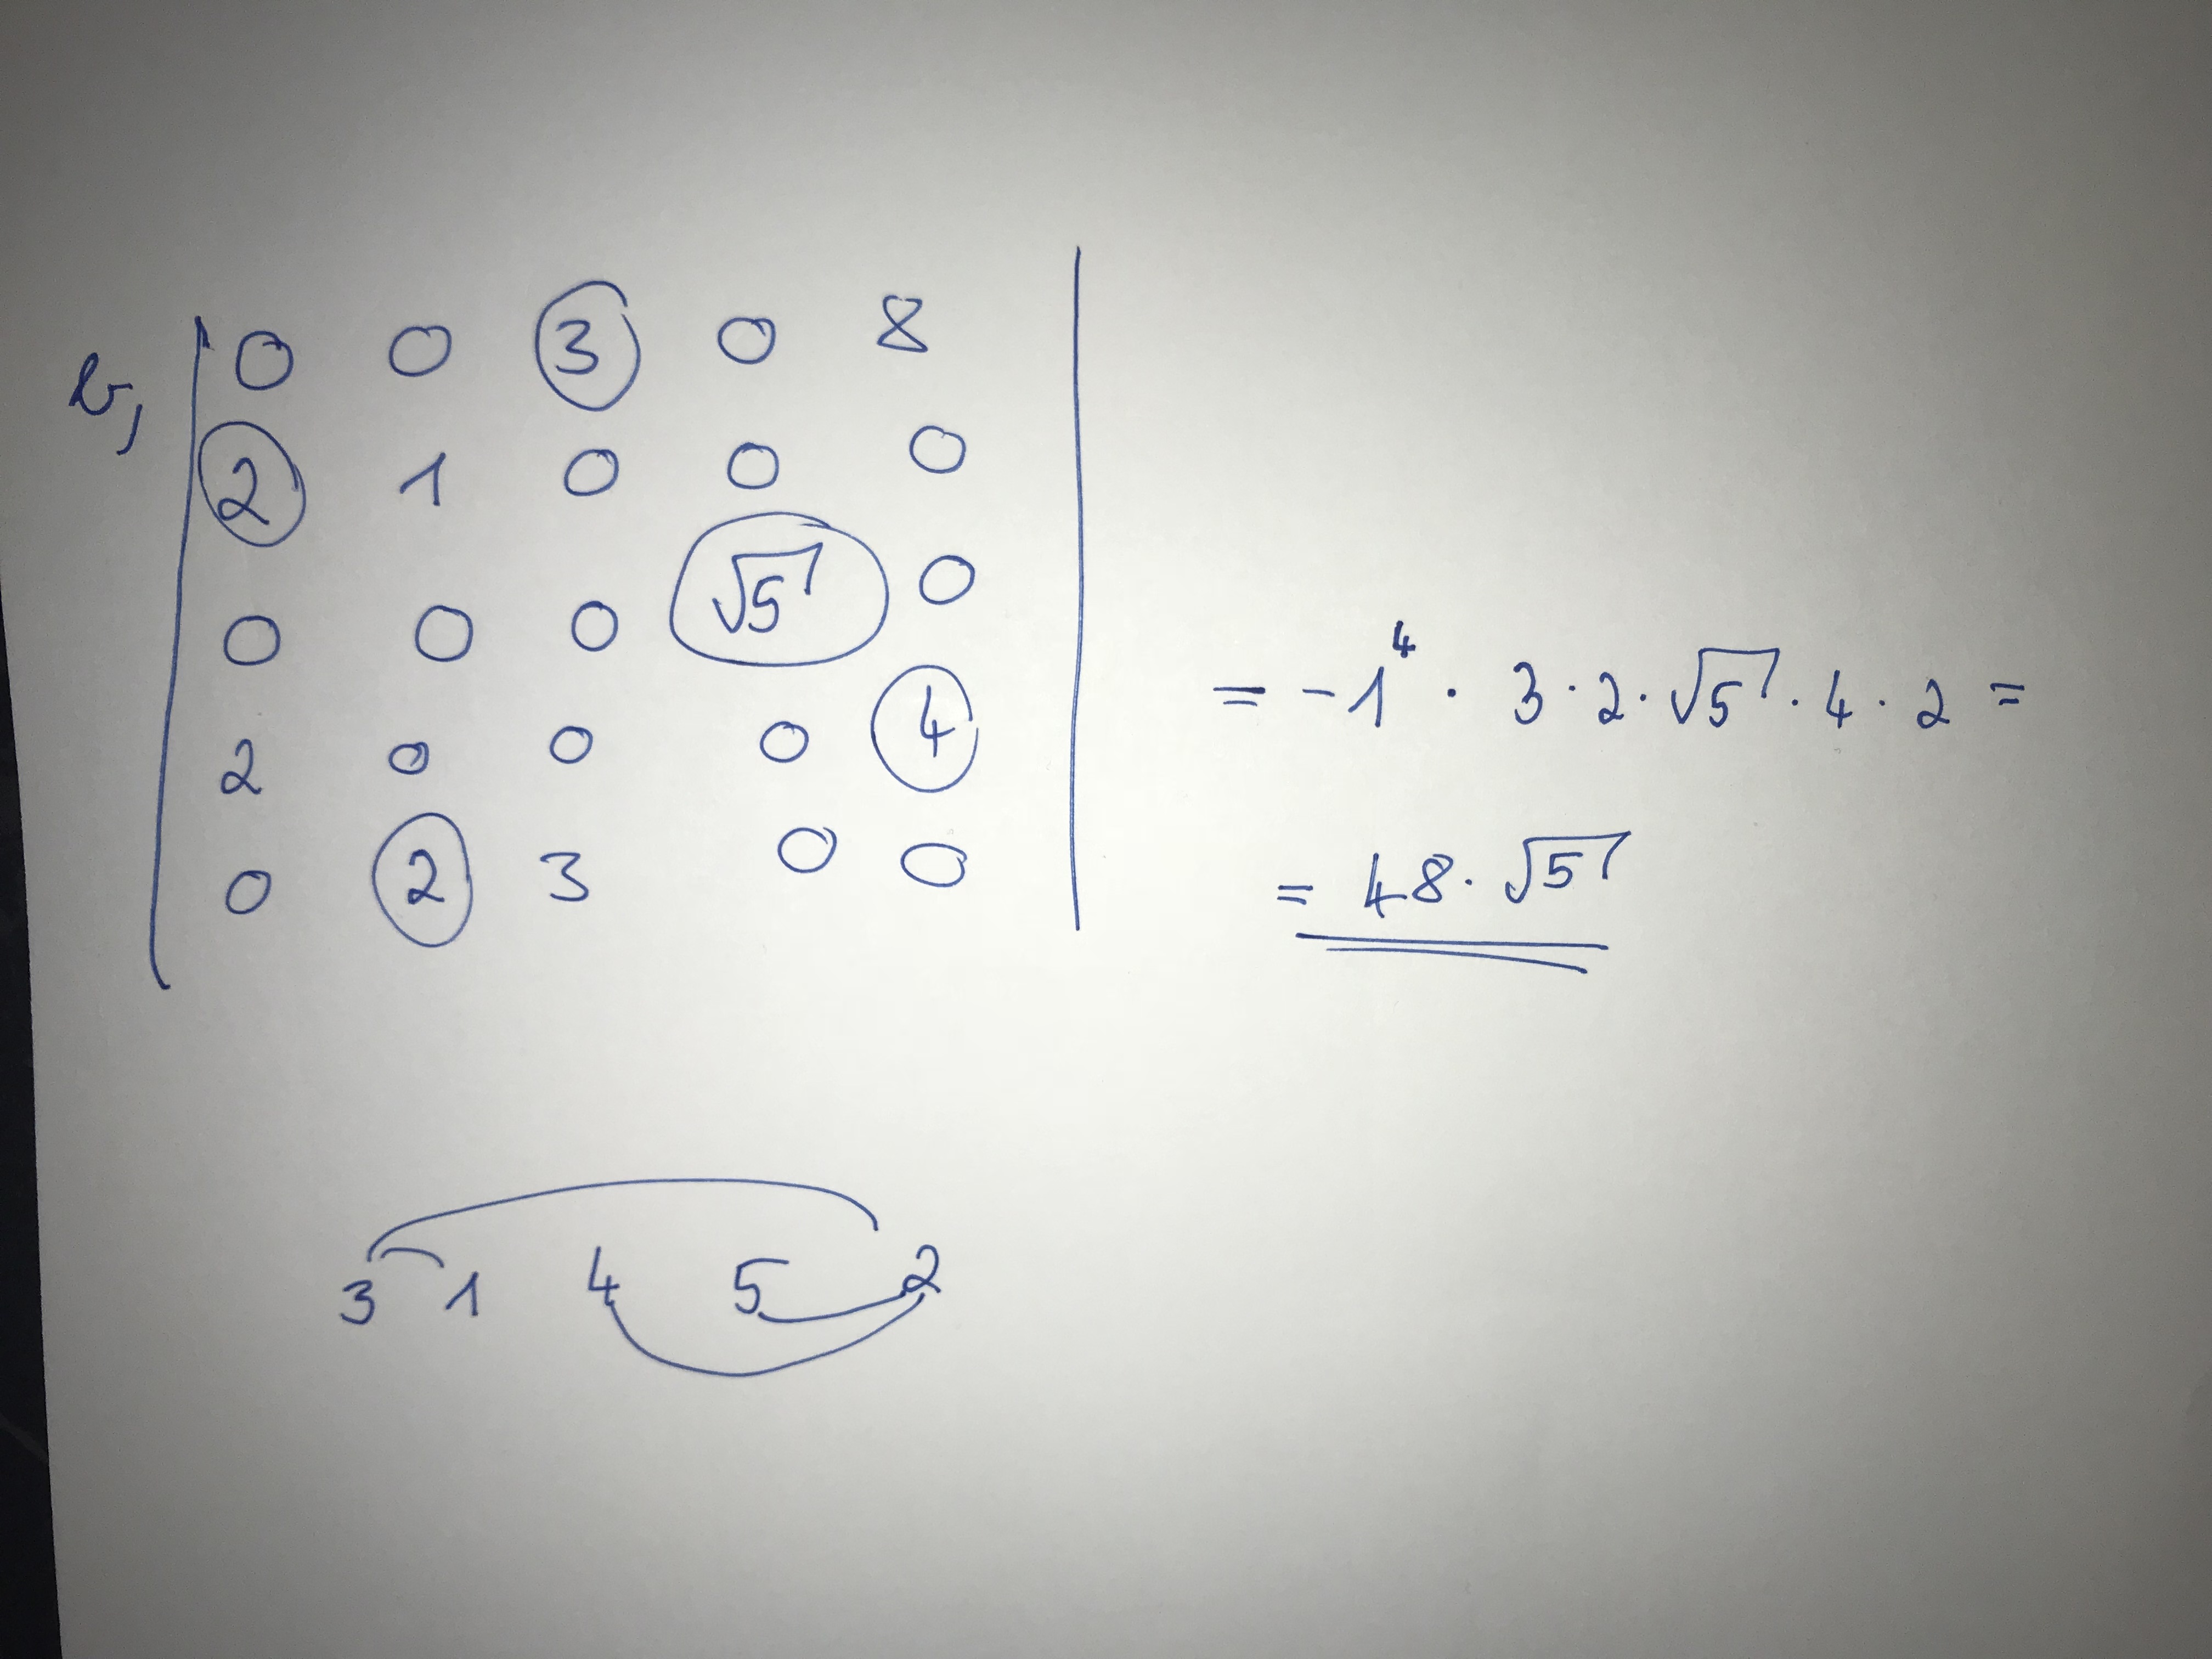 b,
0 0 3 0 8
2 1 0 0 0
0 0 0 √5 0
2 0 0 0 4
0 2 3 0 0
= -1⁴ · 3 · 2 · √5 · 4 · 2 =
= 48 · √5
3 1 4 5 2